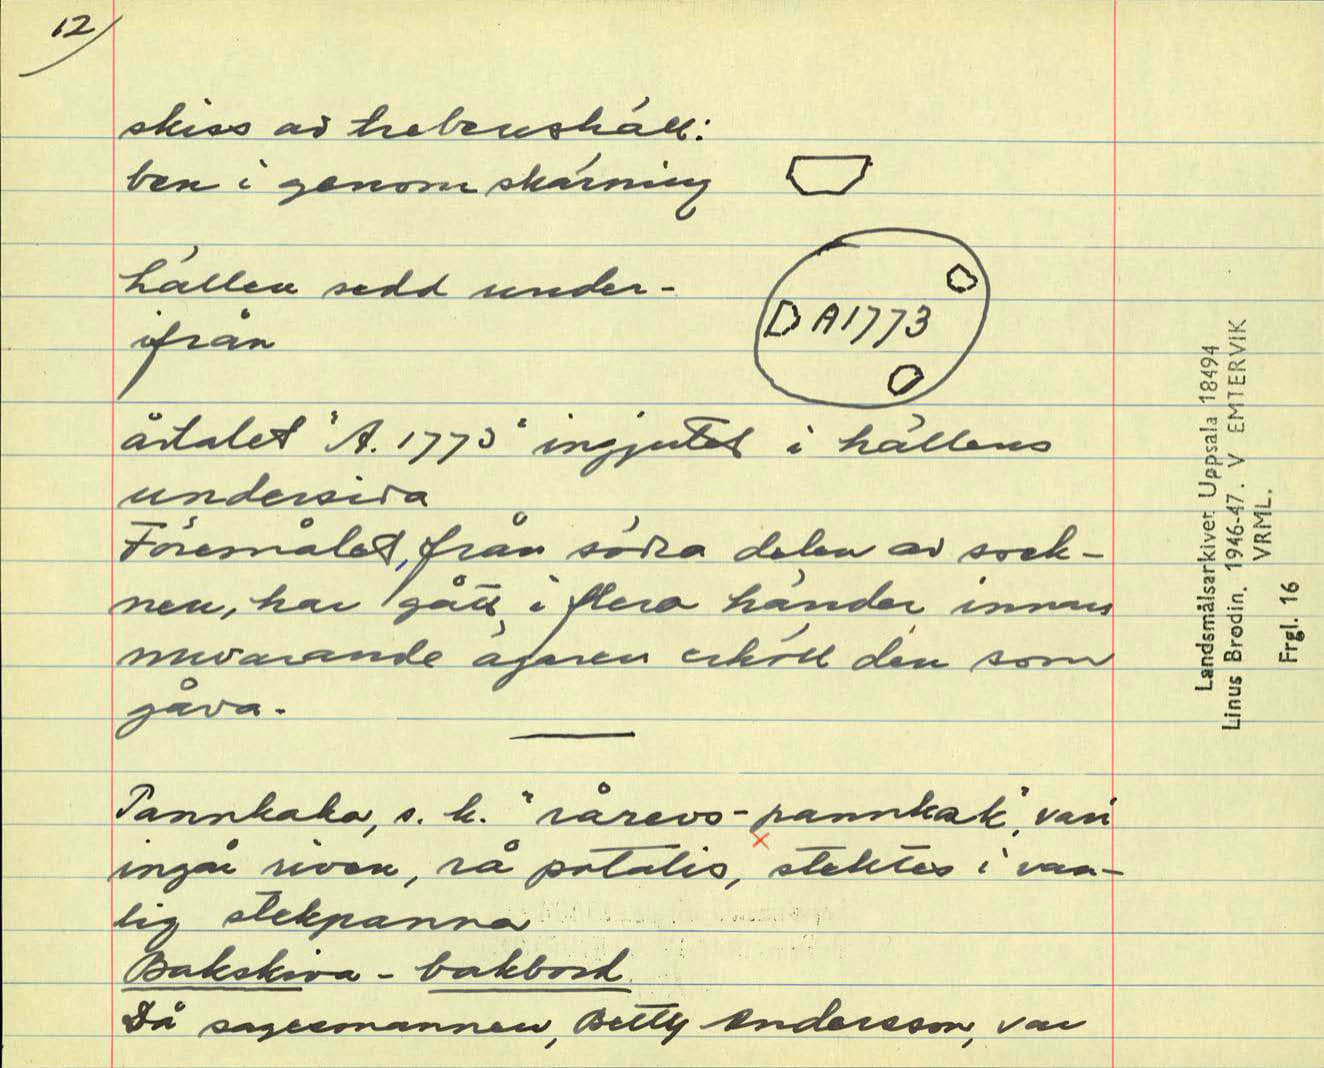 12
skiss av trebenshäll:
ben i genomskärning
hällen sedd under-
ifrån
A 1773
årtalet "A. 1773" ingjutet i hällens
undersida
Föremålet, från södra delen av sock-
nen, har gått i flera händer innan
nuvarande ägaren erhöll den som
gåva.
Pannkaka, s. k. "rårevs-pannkak", vari
ingår riven, rå potatis, stektes i van-
lig stekpanna
Bakskiva - bakbord
Då sagesmannen, Betty Andersson, var
Landsmålsarkivet Uppsala 18494
Linus Brodin. 1946-47. V EMTERVIK
VRML.
Frgl. 16